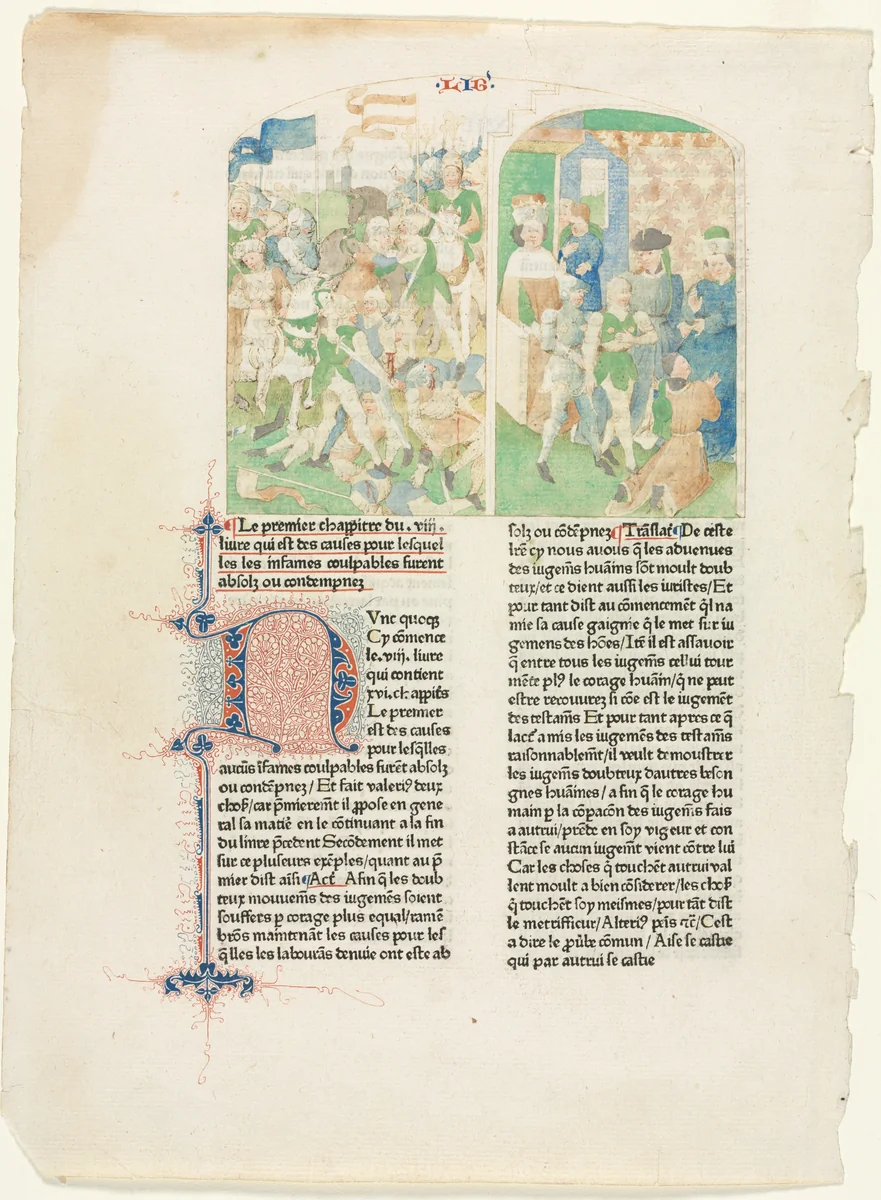 ·LIB'·
¶Le premier chappitre du . viij .
liure qui est des causes pour lesquel
les les infames coulpables furent
absolz ou condempnez
NVnc quoqꝫ
Cy cōmence
le .viij. liure
qui contient
xvi. chappit̄s
Le premier
est des causes
pour lesq̄lles
aucūs īfames coulpables furēt absolz
ou condēpnez / Et fait valeriꝰ deux
choẜ / car p̄mieremēt il ꝓpose en gene
ral sa matiē en le cōtinuant a la fin
du liure p̄cedent Secōdement il met
sur ce pluseurs exēples / quant au p̄
mier dist aīsi ¶Act̄ Afin q̄ les doub
teux mouuemēs des iugemēs soient
souffers ꝑ corage plus equal / ramē
brōs maintenāt les causes pour les
q̄lles les labourās denuie ont este ab
solz ou cōdēpnez ¶Trāslat̄ ¶De ceste
lr̄e cy nous auons q̄ les aduenues
des iugem̄s huaīns sōt moult doub
teux / et ce dient aussi les iuristes / Et
pour tant dist au cōmencemēt q̄l na
mie sa cause gaignie q̄ le met sur iu
gemens des hōes / Itē il est assauoir
q̄ entre tous les iugem̄s cellui tour
mēte plꝰ le corage huaīn / q̄ ne peut
estre recouurez si cōe est le iugemēt
des testam̄s Et pour tant apres ce q̄
lact̄ a mis les iugemēs des testam̄s
raisonnablem̄t / il veult demoustrer
les iugem̄s doubteux dautres beson
gnes huaīmes / a fin q̄ le corage hu
main ꝑ la cōpacōn des iugem̄s fais
a autrui / prēde en soy vigeur et con
stāce se aucun iugem̄t vient cōtre lui
Car les choses q̄ touchēt autrui val
lent moult a bien cōsiderer / les choẜ
q̄ touchēt soy meismes / pour tāt dist
le metrifficur / Alteriꝰ pēis ⁊c̄ / Cest
a dire le ꝓūbe cōmun / Aise se castie
qui par autrui se castie